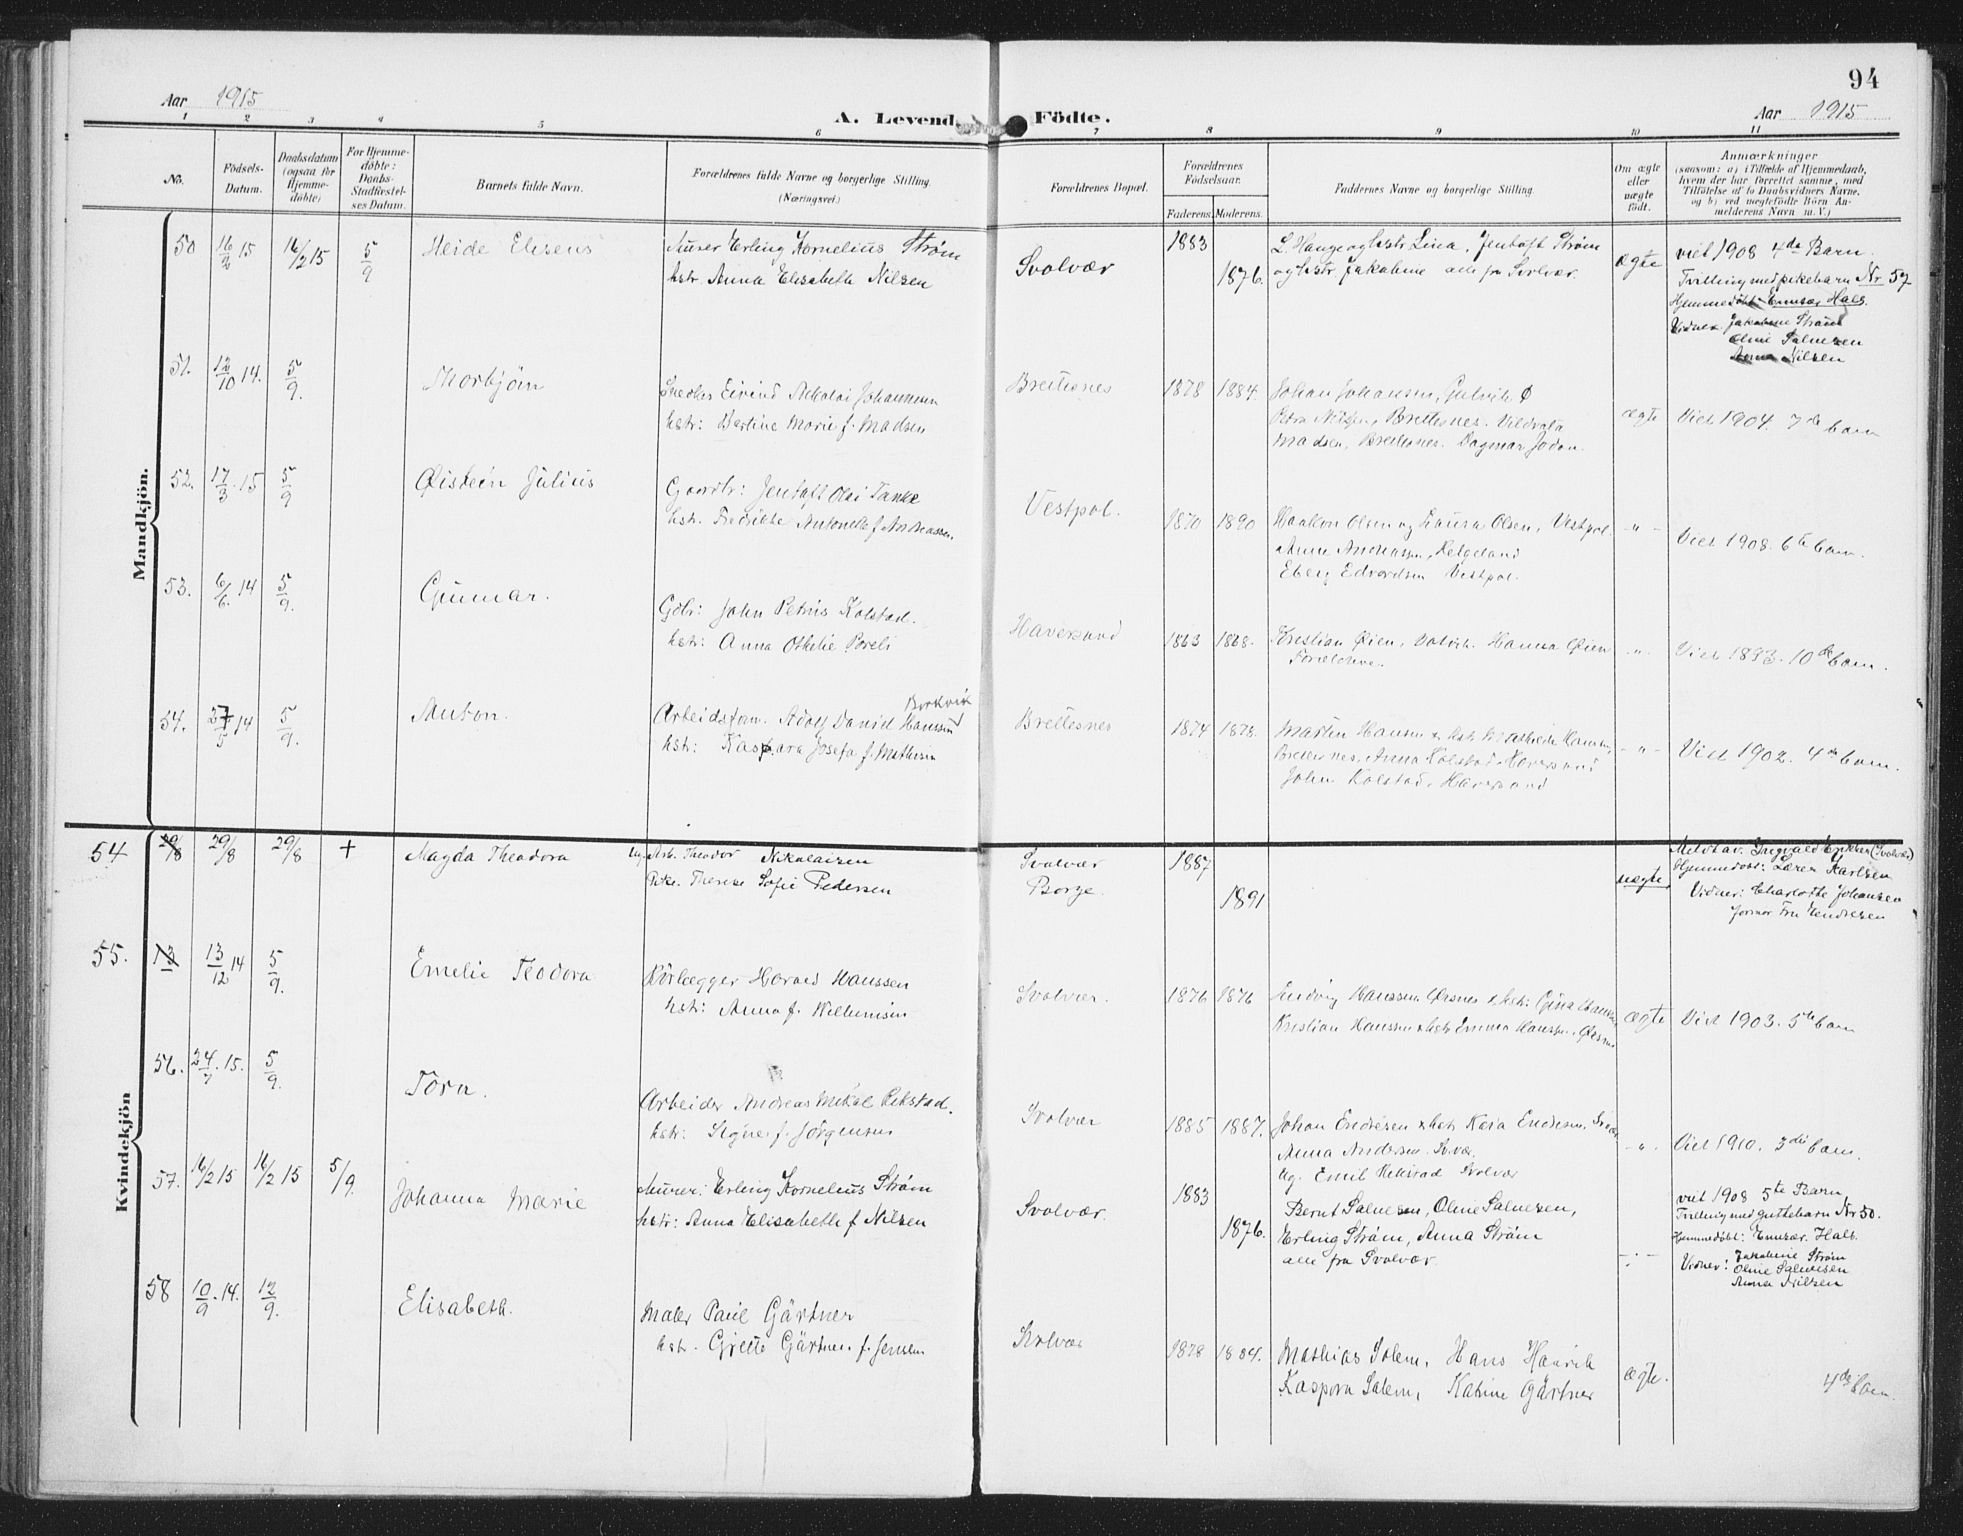 94
Aar 1915
A. Levend Födte.
Aar 1915
1 2 3 4 5 6 7 8 9 10 11
No.
Födsels-
Datum.
Daabsdatum
(ogsaa for
Hjemme-
döbte)
For Hjemme-
döbte:
Daabs-
Stadfæstel-
ses Datum.
Barnets fulde Navn.
Forældrenes fulde Navne og borgerlige Stilling.
(Næringsvei)
Forældrenes Bopæl.
Forældrenes
Födselsaar.
Faderens. Moderens.
Faddernes Navne og borgerlige Stilling.
Om ægte
eller
uægte
födt.
Anmærkninger
(saasom: a) i Tilfælde af Hjemmedaab,
hvem der har forrettet samme, med
Tilföielse af to Daabsvidners Navne,
og b) ved uægtefödte Börn An-
melderens Navn m. V.)
Mandkjön.
50 16/2 15 16/2 15 5/9 Heide Elisens
Murer Erling Kornelius Strøm
hstr. Anna Elisabeth Nilsen
Svolvær
1883
1876.
L. Hauge og hstr Lina, Jentoft Strøm
og hstr Jakobine alle fra Svolvær.
ægte
viet 1908 4de Barn.
Tvilling med pikebarn Nr 57
Hjemmedøbt Hals.
Vidner. Jakobine Strøm
Oline Salvesen
Anna Nilsen
51. 12/10 14. 5/9. Thorbjørn
Snedker Eivind Nikolai Johannesen
hstr: Bertine Marie f. Madsen
Brettesnes
1878 1884.
Johan Johansen,
Petra Nilsen, Brettesnes.
Madsen, Brettesnes. Dagmar
ægte
Viet 1904 7de barn
52. 17/3 15 5/9 Øistein Julius
Gaardbr: Jentoft Olai Tanke
hstr. Fredrikke Antonette f. Andreassen.
Vestpol.
1870 1890
Haakon Olsen og Laura Olsen, Vestpol.
Anne Andreassen, Helgeland
Edvardsen Vestpol.
- " -
Viet 1908. 6te barn.
53. 6/6. 14 5/9. Gunnar.
Gbr: John Petrus Kolstad.
hstr: Anna Othelie
Haversand
1863 1868.
Kristian Øien, Hanna Øien
Forældrene.
- " -
Viet 1893. 10de barn.
54. 27/5 14 5/9. Anton.
Borkvik
Arbeidsfom. Adolf Daniel Hanssen
hstr: Kaspara Josefa f. Mathisen
Brettesnes
1874 1878.
Martin Hansen & hstr Mathilde Hansen,
Brettesnes, Anna Kolstad, Haversand
John Kolstad, Haversand
- " -
Viet 1902. 4de barn.
Kvindekjön
54 29/8 29/8 29/8 + Magda Theodora
ug. Arb. Theodor Nikolaisen
Pike. Therese Sofie Pedersen
Svolvær
Borge.
1887
1891
uægte
Meldt av. Ingvald Eriksen (Svolvær)
Hjemmedøbt: Lærer Karlsen
Vidner: Charlotte Johansen
Jormor Fru Endresen
55. 13 13/12 14 5/9. Emelie Teodora
Rørlægger Harald Hanssen
hstr: Anna f. Willumsen
Svolvær.
1876 1876
Ludvig Hanssen Ørsnes & hstr: Gina Hanssen,
Kristian Hanssen & hstr Emma Hanssen, Ørsnes
ægte
Viet 1903. 5te barn
56. 24/7. 15. 5/9. Tora.
Arbeider Andreas Mikal Rekstad.
hstr: Signe f. Jørgensen
Svolvær
1885 1887.
Johan Endresen & hstr Kaia Endresen, Svolvær
Anna Andersen. Svvær.
Ug. Emil Rekstad Svolvær
- " -
Viet 1910. 3die barn.
57. 16/2 15 16/2 15 5/9. Johanna Marie
Murer: Erling Kornelius Strøm
hstr: Anna Elisabeth f Nilsen
Svolvær.
1883
1876.
Bernt Salvesen, Oline Salvesen,
Erling Strøm, Anna Strøm
alle fra Svolvær.
- : -
viet 1908 5te Barn,
Tvilling med guttebarn Nr 50.
Hjemmedøbt: Hals.
Vidner: Jakobine Strøm
Oline Salvesen
Anna Nilsen
58 10/9. 14. 12/9. Elisabeth.
Maler Paul Gärtner
hstr. Grette Gärtner f. Jensen
Svolvær
1878 1884.
Mathias Solem, Hans Henrik
Kaspara Solem, Katrine Gärtner
ægte.
4de barn.